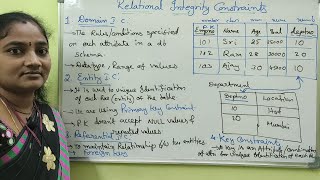 Relational Integrity Constraints
1. Domain I.C:
- The Rules/Conditions specified
on each attribute in a db
Schema.
- Data type, Range of values
2. Entity I.C:
- It is used to unique Identification
of each Row/Entity of the table
- We are using Primary Key Constraint
- P.K doesn't accept NULL values &
repeated values
3. Referential I.C
- To maintain Relationships b/w two entities
Foreign Key
Empno Name Age Sal Deptno
101 Sri 25 10
102 Ram 28 20
103 Ajay 30 10
Department
Deptno Location
10 Hyd
20 Mumbai
4. Key Constraints
- Key is an Attribute/combination
of attr for Unique Identification of each